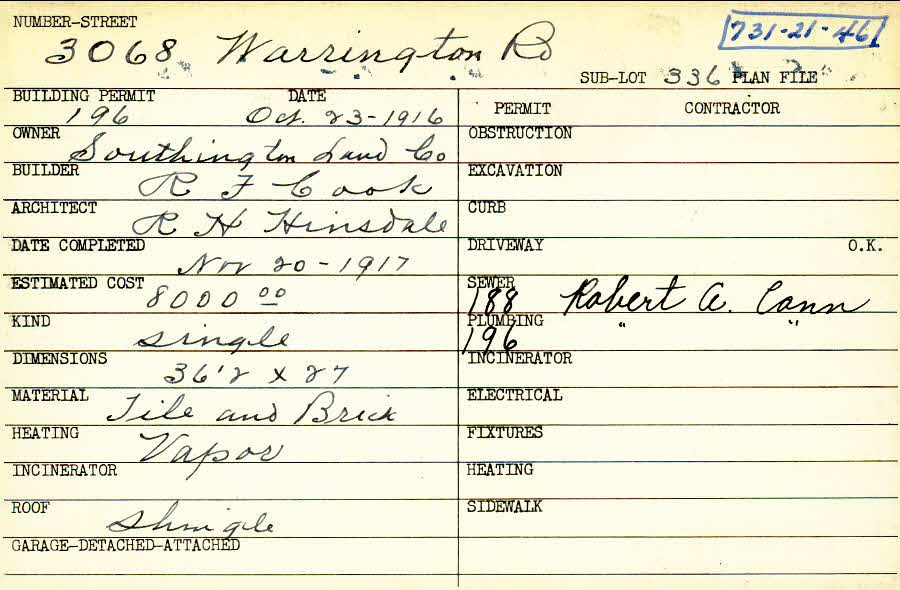 NUMBER-STREET
3068 Warrington Rd
731-21-46
SUB-LOT 336 PLAN FILE
BUILDING PERMIT DATE
196 Oct. 23-1916
OWNER
Southington Land Co
BUILDER
R F Cook
ARCHITECT
R H Hinsdale
DATE COMPLETED
Nov 20-1917
ESTIMATED COST
8000 00
KIND
Single
DIMENSIONS
36'2 x 27
MATERIAL
Tile and Brick
HEATING
Vapor
INCINERATOR
ROOF
Shingle
GARAGE-DETACHED-ATTACHED
PERMIT CONTRACTOR
OBSTRUCTION
EXCAVATION
CURB
DRIVEWAY O.K.
SEWER
188 Robert A. Cann
PLUMBING
196 " "
INCINERATOR
ELECTRICAL
FIXTURES
HEATING
SIDEWALK